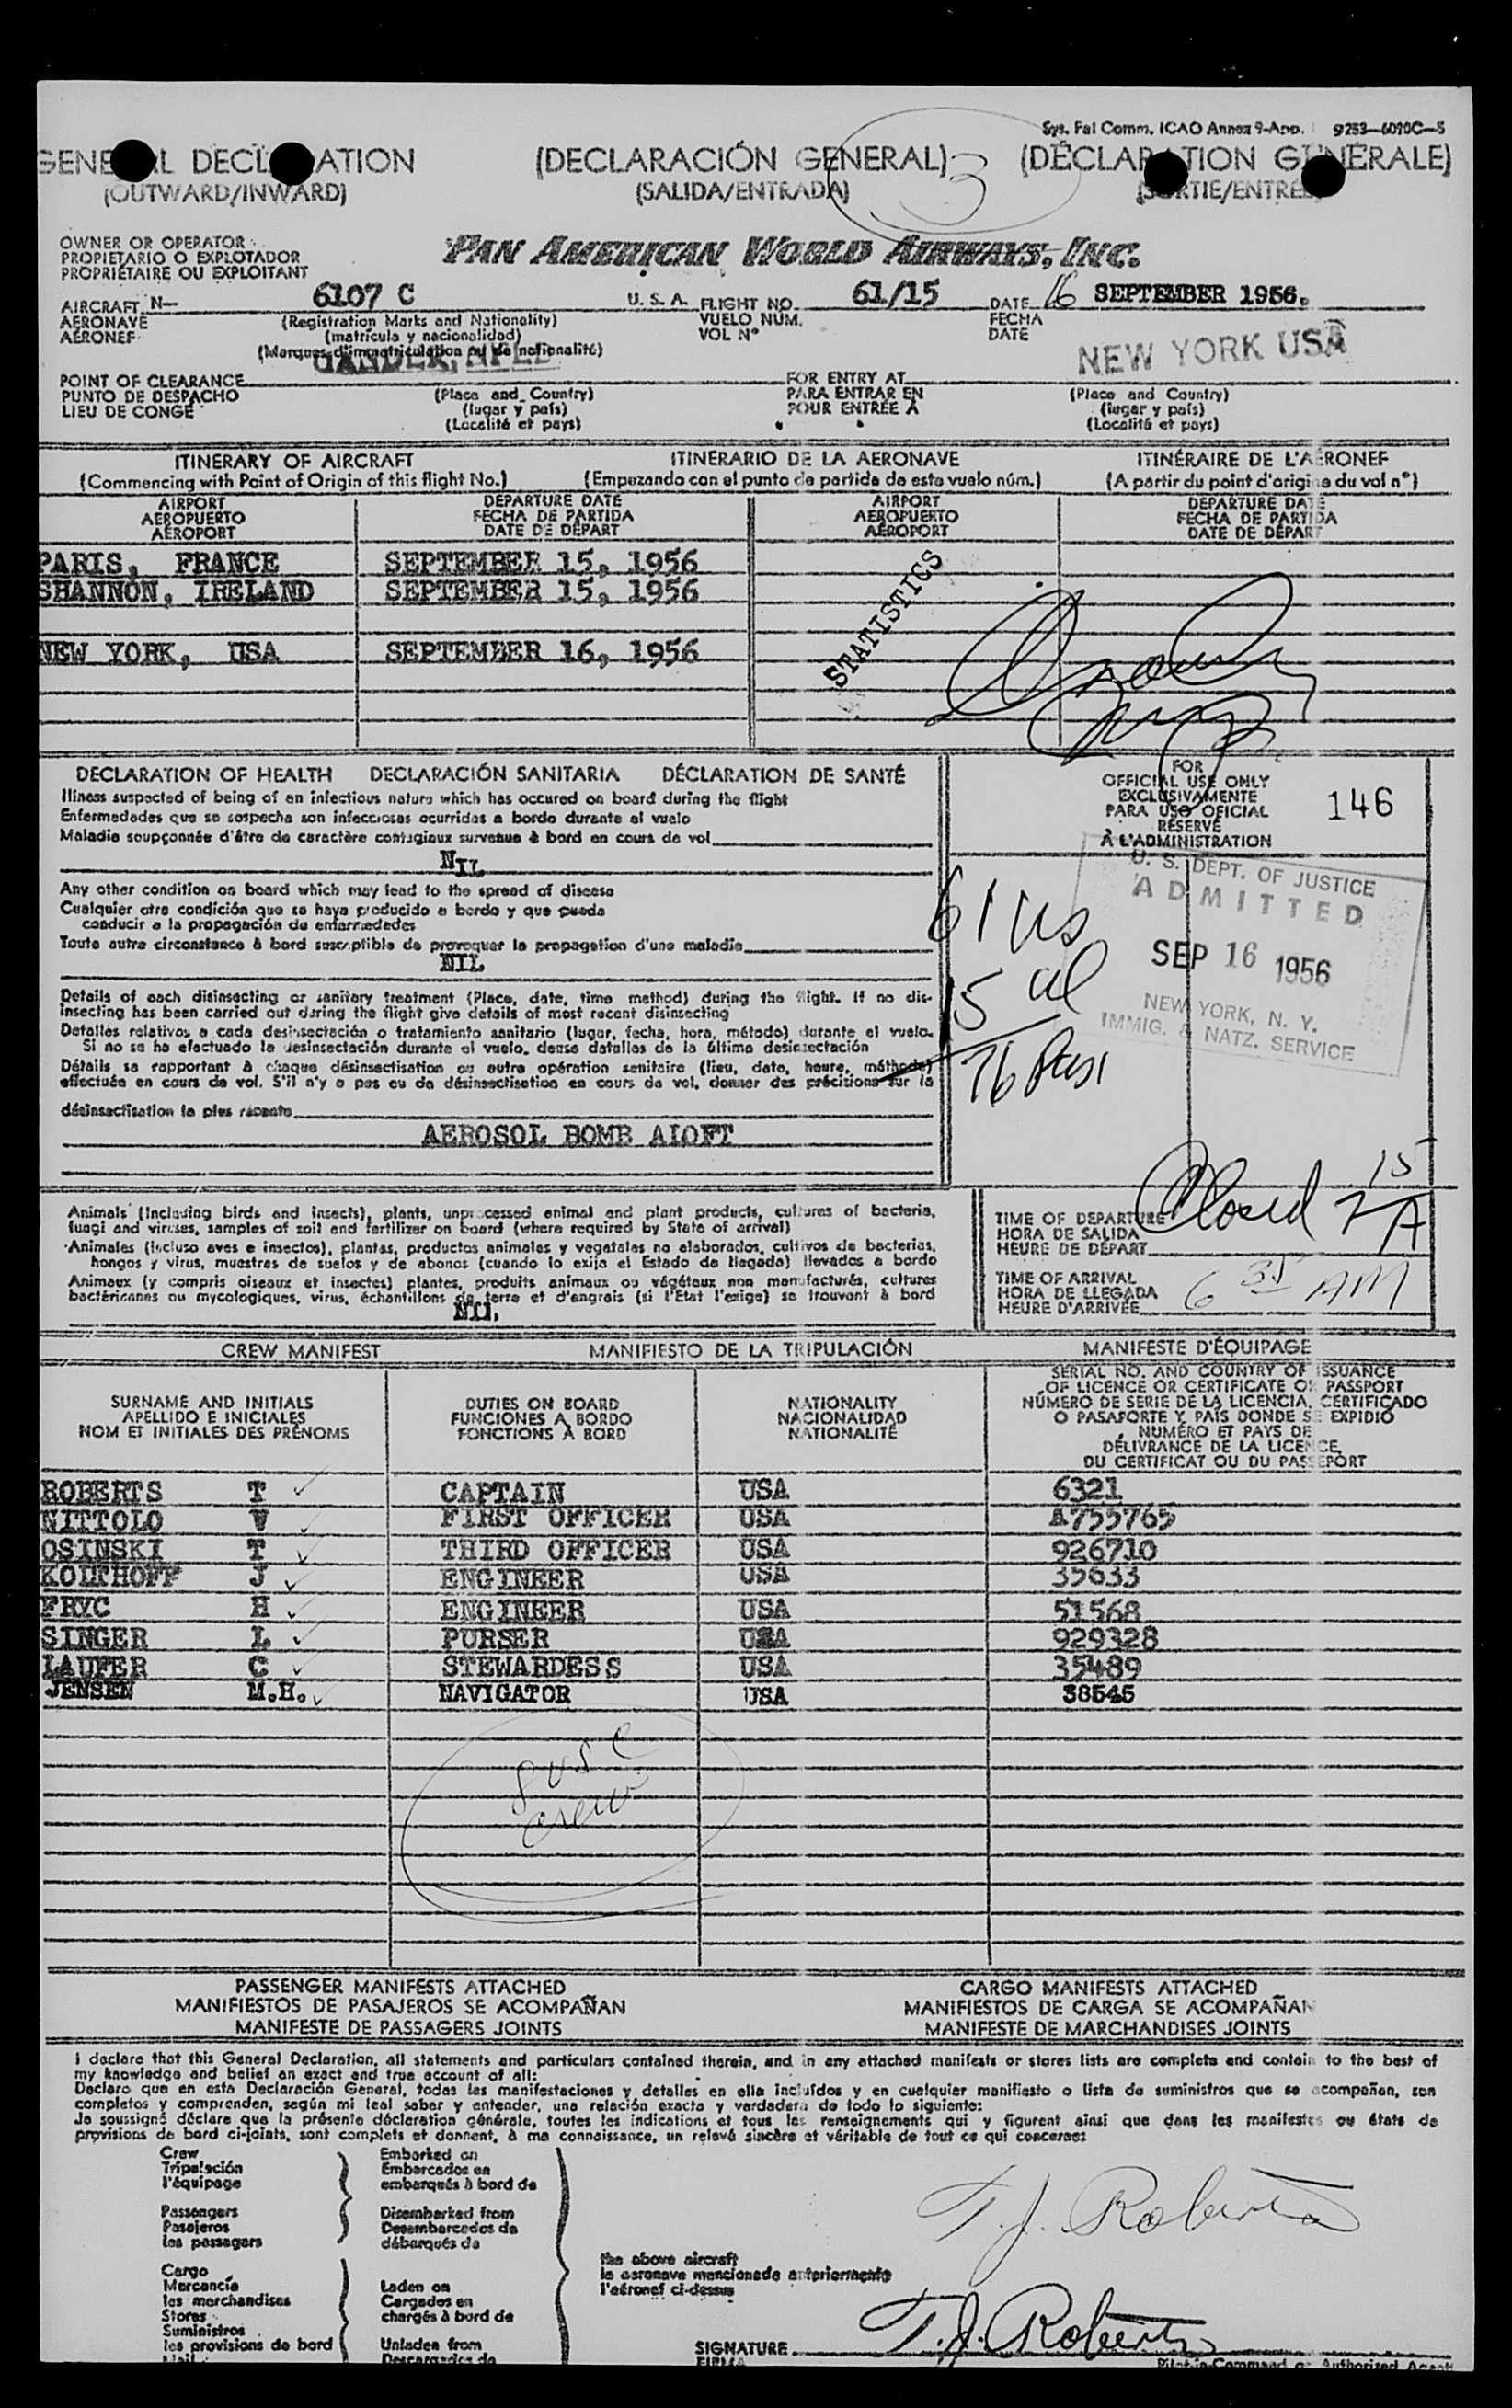 Sys. Fal Comm. ICAO Annex 9-App. 9253—6090C—S
GENERAL DECLARATION (DECLARACIÓN GENERAL) 3 (DÉCLARATION GÉNÉRALE)
(OUTWARD/INWARD) (SALIDA/ENTRADA) (SORTIE/ENTRÉE)
OWNER OR OPERATOR
PROPIETARIO O EXPLOTADOR PAN AMERICAN WORLD AIRWAYS, INC.
PROPRIÉTAIRE OU EXPLOITANT
AIRCRAFT N— 6107 C U. S. A. FLIGHT NO. 61/15 DATE 16 SEPTEMBER 1956.
AERONAVE (Registration Marks and Nationality) VUELO NÚM. FECHA
AÉRONEF (matrícula y nacionalidad) VOL N° DATE
(Marques d'immatriculation ou de nationalité) NEW YORK USA
GANDER, NFLD
POINT OF CLEARANCE FOR ENTRY AT
PUNTO DE DESPACHO (Place and Country) PARA ENTRAR EN (Place and Country)
LIEU DE CONGÉ (lugar y país) POUR ENTRÉE À (lugar y país)
(Localité et pays) (Localité et pays)
ITINERARY OF AIRCRAFT ITINERARIO DE LA AERONAVE ITINÉRAIRE DE L'AÉRONEF
(Commencing with Point of Origin of this flight No.) (Empezando con el punto de partida de este vuelo núm.) (A partir du point d'origine du vol n°)
AIRPORT DEPARTURE DATE AIRPORT DEPARTURE DATE
AEROPUERTO FECHA DE PARTIDA AEROPUERTO FECHA DE PARTIDA
AÉROPORT DATE DE DÉPART AÉROPORT DATE DE DÉPART
PARIS, FRANCE SEPTEMBER 15, 1956
SHANNON, IRELAND SEPTEMBER 15, 1956
STATISTICS
NEW YORK, USA SEPTEMBER 16, 1956
DECLARATION OF HEALTH DECLARACIÓN SANITARIA DÉCLARATION DE SANTÉ
Illness suspected of being of an infectious nature which has occured on board during the flight
Enfermedades que se sospecha son infecciosas ocurridas a bordo durante el vuelo
Maladie soupçonnée d'être de caractère contagieux survenue à bord en cours de vol
NIL
Any other condition on board which may lead to the spread of disease
Cualquier otra condición que se haya producido a bordo y que pueda
conducir a la propagación de enfermedades
Toute autre circonstance à bord susceptible de provoquer la propagation d'une maladie
NIL
Details of each disinsecting or sanitary treatment (Place, date, time method) during the flight. If no dis-
insecting has been carried out during the flight give details of most recent disinsecting
Detalles relativos a cada desinsectación o tratamiento sanitario (lugar, fecha, hora, método) durante el vuelo.
Si no se ha efectuado la desinsectación durante el vuelo, dense detalles de la última desinsectación
Détails se rapportant à chaque désinsectisation ou autre opération sanitaire (lieu, date, heure, méthode)
effectuée en cours de vol. S'il n'y a pas eu de désinsectisation en cours de vol, donner des précisions sur la
désinsectisation la plus récente
AEROSOL BOMB ALOFT
FOR
OFFICIAL USE ONLY
EXCLUSIVAMENTE
PARA USO OFICIAL
RÉSERVÉ
À L'ADMINISTRATION
146
U. S. DEPT. OF JUSTICE
ADMITTED
SEP 16 1956
NEW YORK, N. Y.
IMMIG. & NATZ. SERVICE
61 US
15 al
76 Pass
Animals (Including birds and insects), plants, unprocessed animal and plant products, cultures of bacteria,
fungi and viruses, samples of soil and fertilizer on board (where required by State of arrival)
Animales (incluso aves e insectos), plantas, productos animales y vegetales no elaborados, cultivos de bacterias,
hongos y virus, muestras de suelos y de abonos (cuando lo exija el Estado de llegada) llevados a bordo
Animaux (y compris oiseaux et insectes) plantes, produits animaux ou végétaux non manufacturés, cultures
bactériennes ou mycologiques, virus, échantillons de terre et d'engrais (si l'Etat l'exige) se trouvant à bord
NIL
Closed 7 15 A
TIME OF DEPARTURE
HORA DE SALIDA
HEURE DE DÉPART
TIME OF ARRIVAL
HORA DE LLEGADA 6 35 AM
HEURE D'ARRIVÉE
CREW MANIFEST MANIFIESTO DE LA TRIPULACIÓN MANIFESTE D'ÉQUIPAGE
SURNAME AND INITIALS
APELLIDO E INICIALES
NOM ET INITIALES DES PRÉNOMS
DUTIES ON BOARD
FUNCIONES A BORDO
FONCTIONS À BORD
NATIONALITY
NACIONALIDAD
NATIONALITÉ
SERIAL NO. AND COUNTRY OF ISSUANCE
OF LICENCE OR CERTIFICATE OR PASSPORT
NÚMERO DE SERIE DE LA LICENCIA, CERTIFICADO
O PASAPORTE Y PAÍS DONDE SE EXPIDIÓ
NUMÉRO ET PAYS DE
DÉLIVRANCE DE LA LICENCE,
DU CERTIFICAT OU DU PASSEPORT
ROBERTS T CAPTAIN USA 6321
NITTOLO V FIRST OFFICER USA A755765
OSINSKI T THIRD OFFICER USA 926710
KOLTHOFF J ENGINEER USA 35633
FRYC H ENGINEER USA 51568
SINGER L PURSER USA 929328
LAUFER C STEWARDESS USA 35489
JENSEN M.H. NAVIGATOR USA 38545
8 USC
crew
PASSENGER MANIFESTS ATTACHED CARGO MANIFESTS ATTACHED
MANIFIESTOS DE PASAJEROS SE ACOMPAÑAN MANIFIESTOS DE CARGA SE ACOMPAÑAN
MANIFESTE DE PASSAGERS JOINTS MANIFESTE DE MARCHANDISES JOINTS
I declare that this General Declaration, all statements and particulars contained therein, and in any attached manifests or stores lists are complete and contain to the best of
my knowledge and belief an exact and true account of all:
Declaro que en esta Declaración General, todas las manifestaciones y detalles en ella incluídos y en cualquier manifiesto o lista de suministros que se acompañan, son
completos y comprenden, según mi leal saber y entender, una relación exacta y verdadera de todo lo siguiente:
Je soussigné déclare que la présente déclaration générale, toutes les indications et tous les renseignements qui y figurent ainsi que dans les manifestes ou états de
provisions de bord ci-joints, sont complets et donnent, à ma connaissance, un relevé sincère et véritable de tout ce qui concerne:
Crew Embarked on
Tripulación Embarcados en
l'équipage embarqués à bord de
Passengers Disembarked from
Pasajeros Desembarcados de
les passagers débarqués de
T. J. Roberts
the above aircraft
la aeronave mencionada anteriormente
l'aéronef ci-dessus
Cargo
Mercancía Laden on
les marchandises Cargados en
Stores chargés à bord de
Suministros
les provisions de bord Unladen from
Mail Descargados de
SIGNATURE T. J. Roberts
FIRMA Pilot-in-Command or Authorized Agent